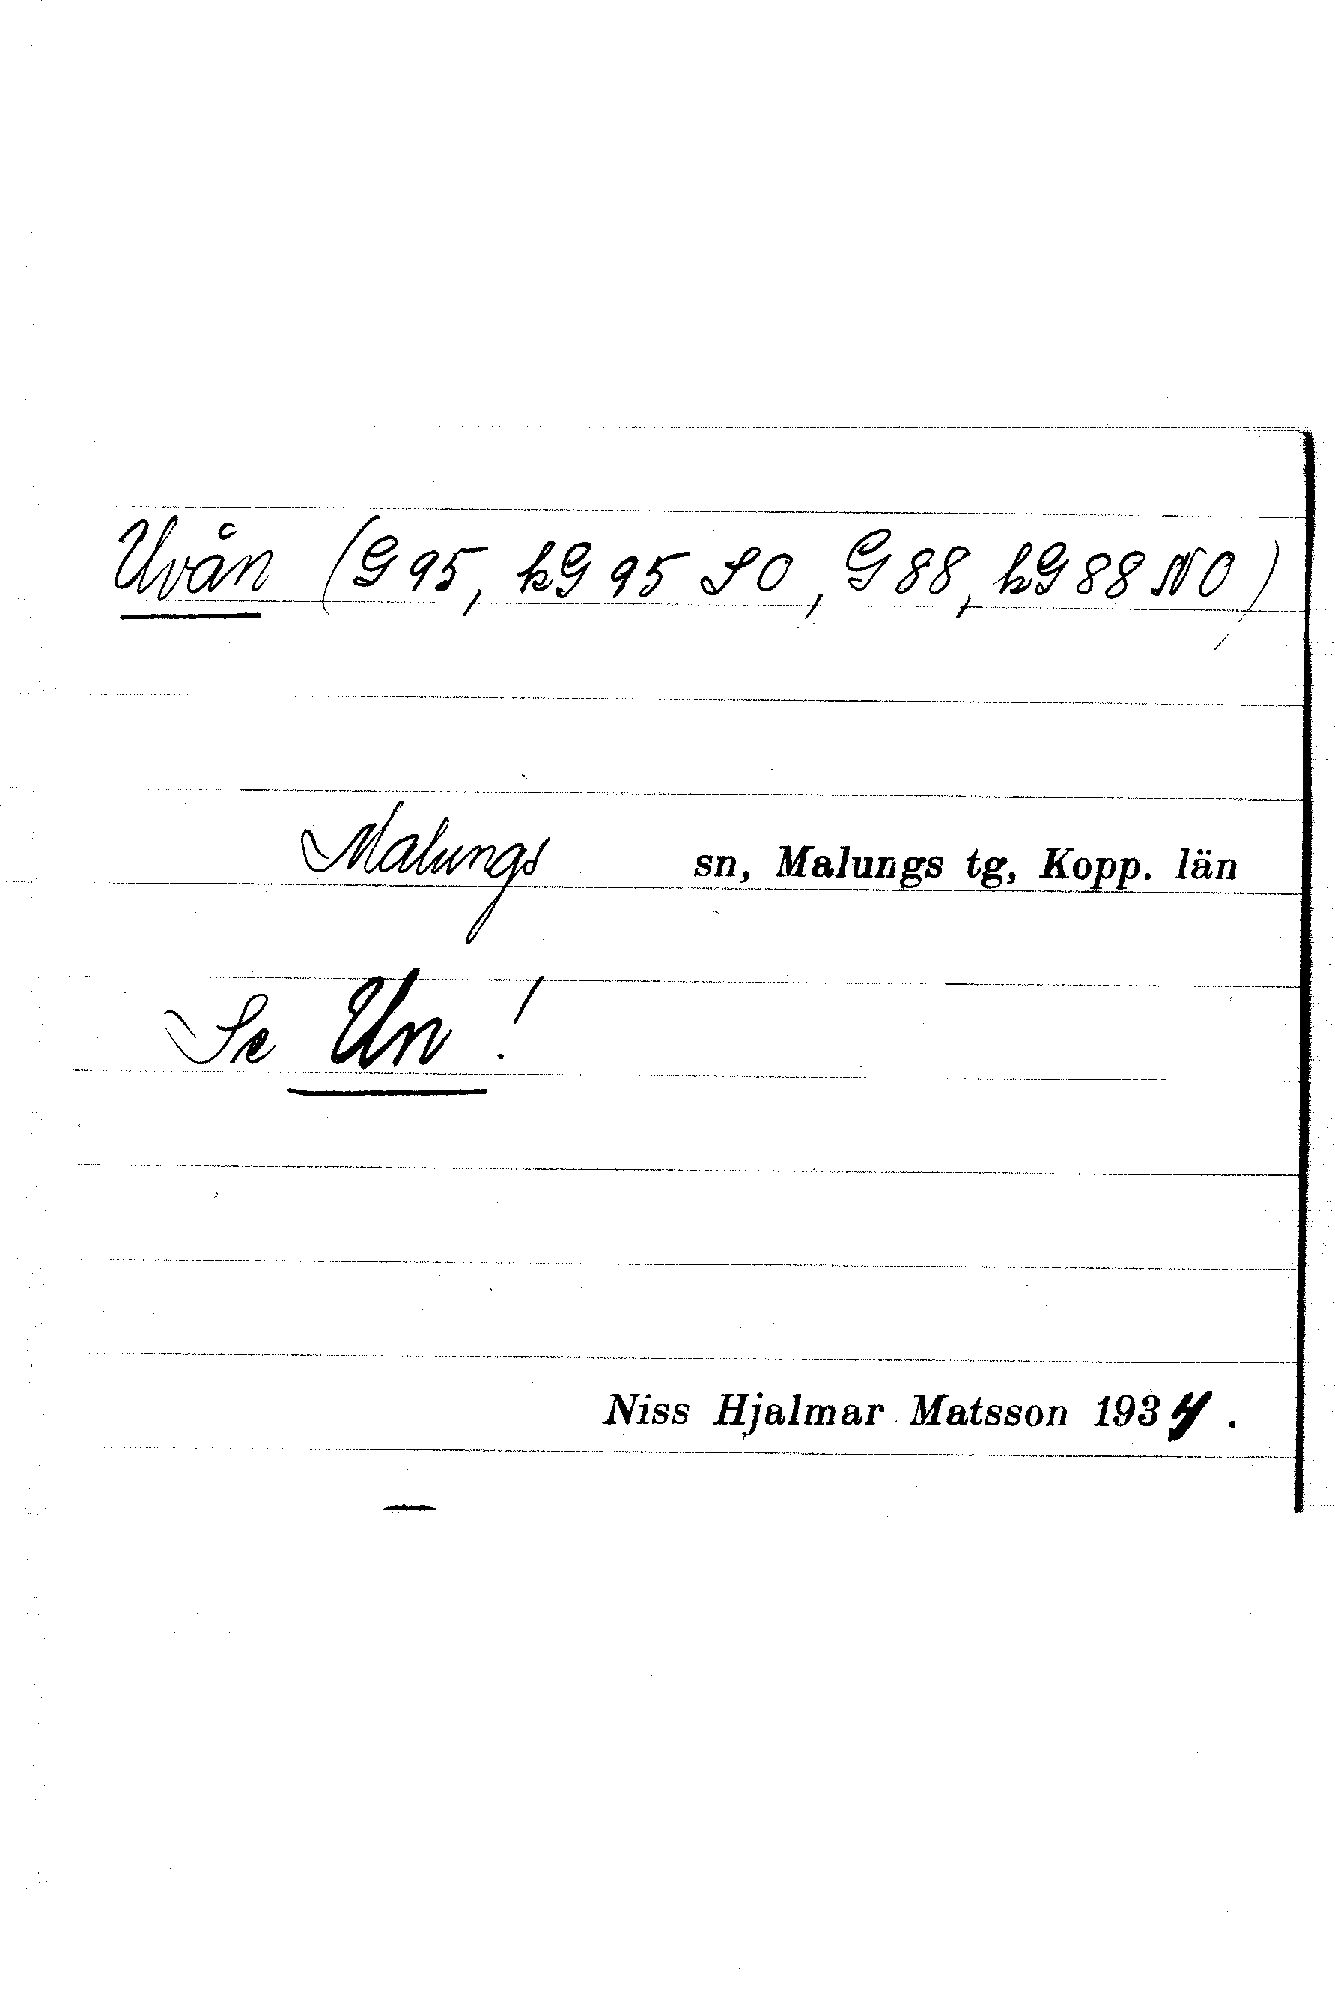 Uvån (G 95, kG 95 SO, G 88, kG 88 NO)
Malungs sn, Malungs tg, Kopp. län
Se Un!
Niss Hjalmar Matsson 1934.